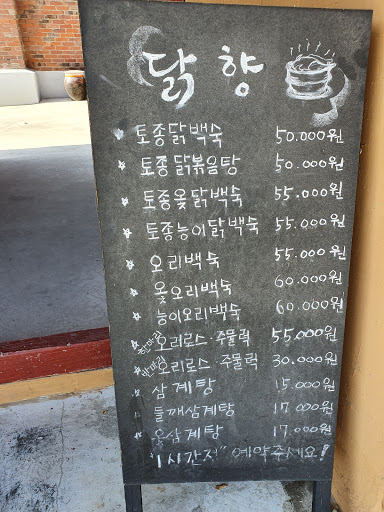 닭 향
토종닭백숙 50.000원
토종닭볶음탕 50.000원
토종옻닭백숙 55.000원
토종능이닭백숙 55.000원
오리백숙 55.000원
옻오리백숙 60.000원
능이오리백숙 60.000원
한마리 오리로스·주물럭 55.000원
반마리 오리로스·주물럭 30.000원
삼계탕 15.000원
들깨삼계탕 17.000원
옻삼계탕 17.000원
"1시간전" 예약주세요!